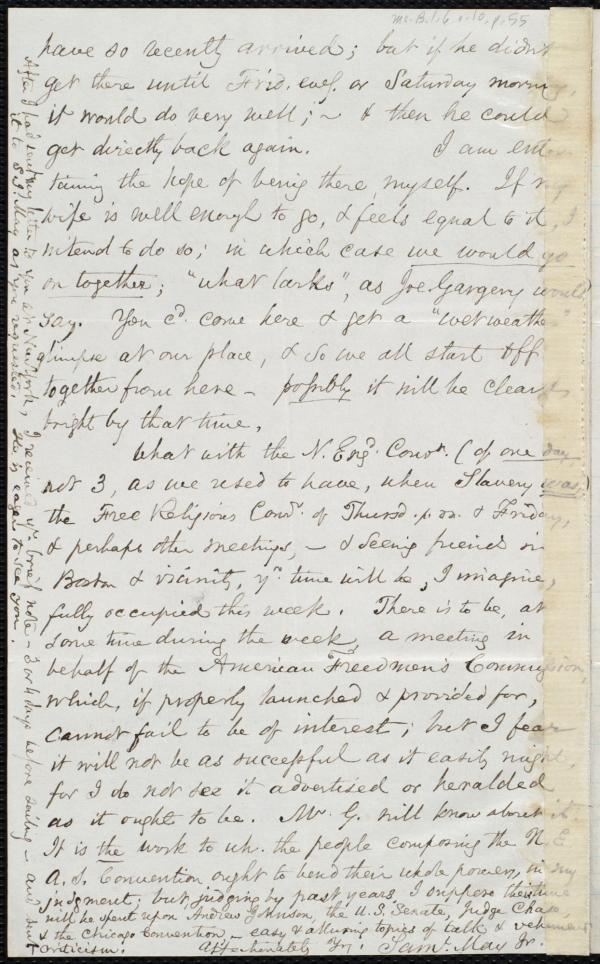 Ms. B.1.6 v.10, p. 55
have so recently arrived; but if he didn't
get there until Frid. eveg. or Saturday morning,
it would do very well; ~ & then he could
get directly back again. I am enter-
taining the hope of being there, myself. If my
wife is well enough to go, & feels equal to it, I
intend to do so; in which case we would go
on together; "what larks", as Joe Gargery would
say. You cd. come here & get a "wet weather"
glimpse at our place, & so we all start off
together from here – possibly it will be clear &
bright by that time.
What with the N. Engd. Convn. (of one day,
not 3, as we used to have, when Slavery was,)
the Free Religious Convn. of Thursd. p.m. & Friday,
& perhaps other meetings, – & seeing friends in
Boston & vicinity, yr. time will be, I imagine,
fully occupied this week. There is to be, at
some time during the week, a meeting in
behalf of the American Freedmen's Commission,
which, if properly launched & provided for,
cannot fail to be of interest; but I fear
it will not be as successful as it easily might,
for I do not see it advertised or heralded
as it ought to be. Mr. G. will know about it.
It is the work to wh. the people composing the N. E
A. S. Convention ought to bend their whole powers, in my
judgment; but, judging by past years I suppose their time
will be spent upon Andrew Johnson, the U.S. Senate, Judge Chase,
& the Chicago Convention – easy & alluring topics of talk & vehement
criticism. Affectionately Yrs. Saml. May Jr.
After I had sent my letter to you at New York, I received yr. brief note – 3 or 4 days before sailing – and sent
it to S. J. May as you requested. He is eager to see you.